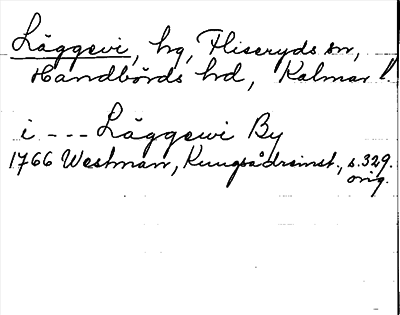 Läggevi, hg, Fliseryds sn,
Handbörds hd, Kalmar l.
i --- Läggewi By
1766 Westman, Kungsådreinst., s. 329.
orig.